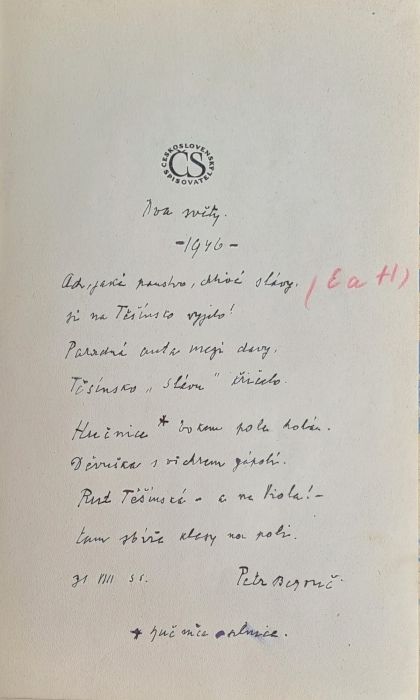 ČESKOSLOVENSKÝ SPISOVATEL
ČS
Dva světy.
-1946-
Ach, jaké panstvo, chtivé slávy,
si na Těšínsko vyjelo!
(E a H)
Parádná auta mezi davy,
Těšínsko „slávu" křičelo.
Hučnice * bokem pole
Děvuška s vichrem zápolí.
Rut Těšínská - a na -
tam sbírá klasy na poli.
31 VIII 55. Petr Bezruč
* hučnice silnice.